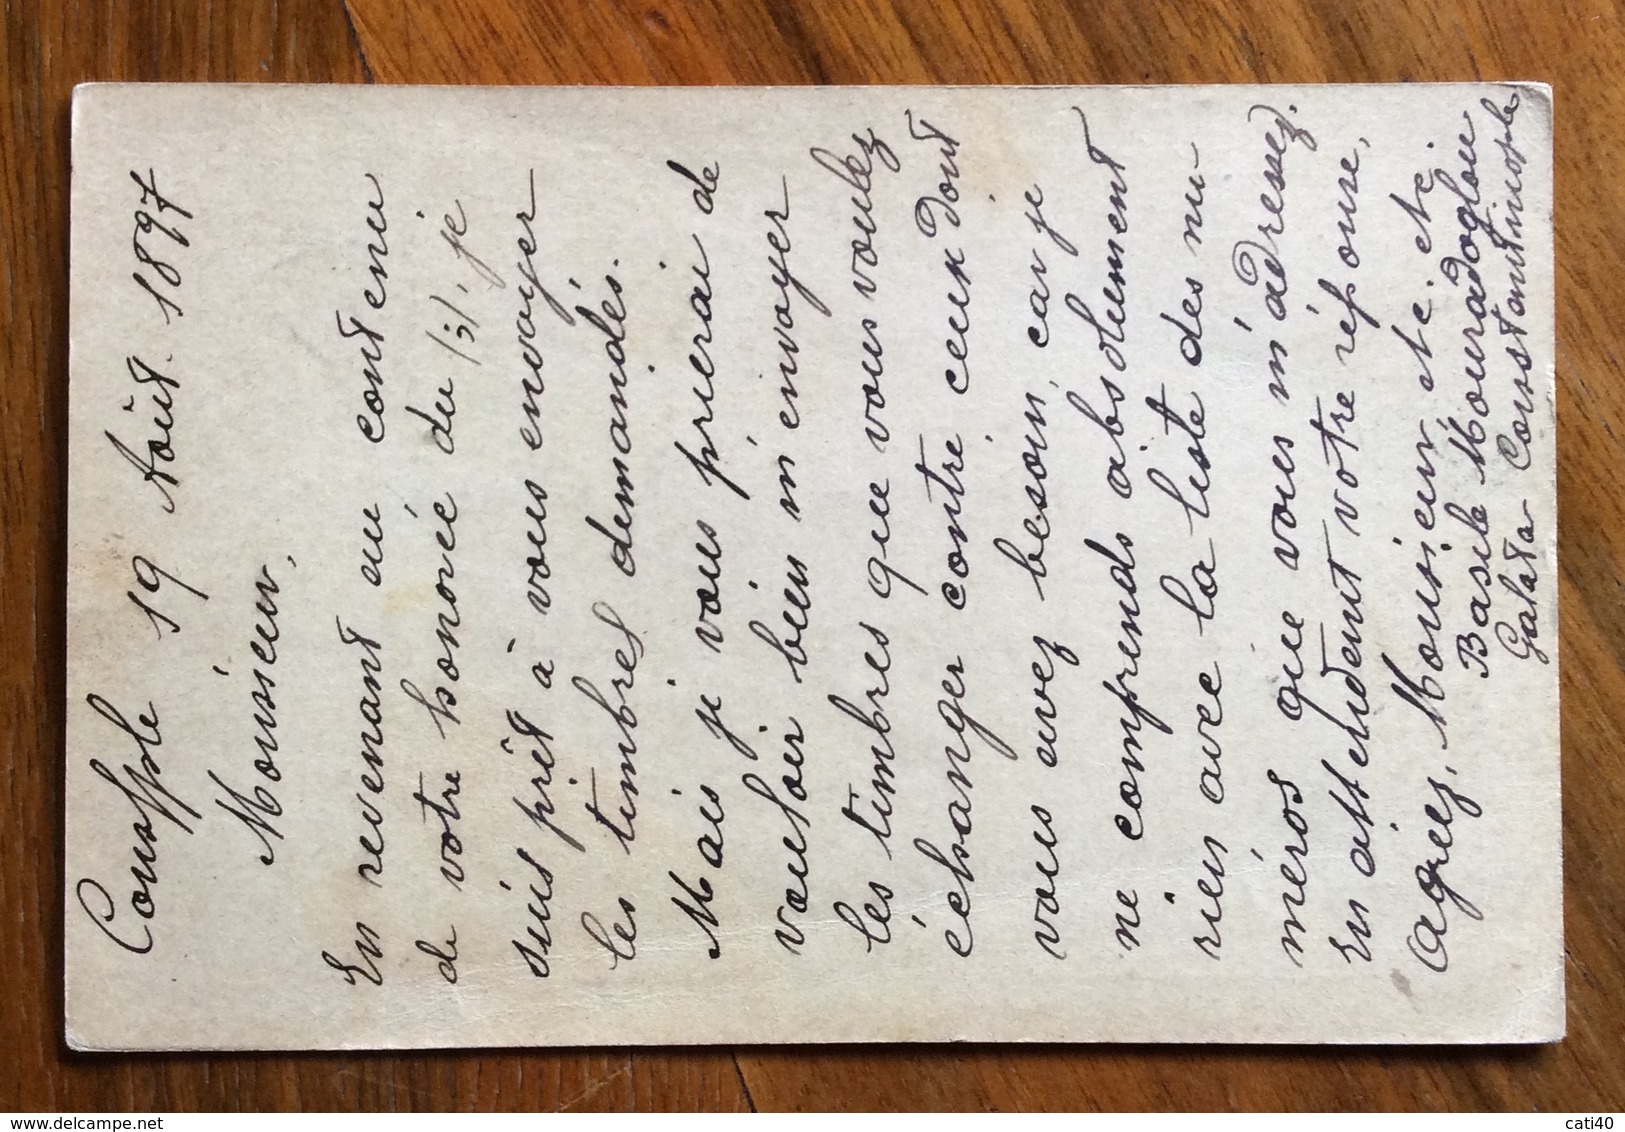 Constple 19 Août. 1897
Monsieur,
En revenant au contenu
de votre honorée du (3), je
suis prêt à vous envoyer
les timbres demandés.
Mais je vous prierai de
vouloir bien m'envoyer
les timbres que vous voulez
échanger contre ceux dont
vous avez besoin, car je
ne comprends absolument
rien avec la liste des nu-
méros que vous m'adressez.
En attendant votre réponse,
Agreez, Monsieur, etc. etc.
Basile Mouradoglou
Galata Constantinople
cati40